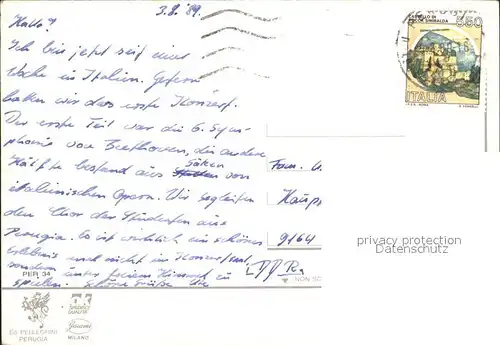 3.8.'89.
Hallo!
Ich bin jetzt seit einer
Woche in Italien. Gestern
haben wir das erste Konzert.
Der erste Teil war die 6. Sym-
phonie von Beethoven, die andere
Hälfte bestand aus Sätzen von
italienischen Opern. Wir begleiten
den Chor der Studenten aus
Perugia. Es ist wirklich ein schönes
Erlebnis mal nicht im Konzertsaal,
sondern unter freiem Himmel zu
spielen. Schöne Grüße
Fam. U
Haup
9164
DDR
CASTELLO DI
ROCCA SINIBALDA
550
ITALIA
privacy protection
Datenschutz
NON SC
PER 34
Ed. PELLEGRINI
PERUGIA
MILANO